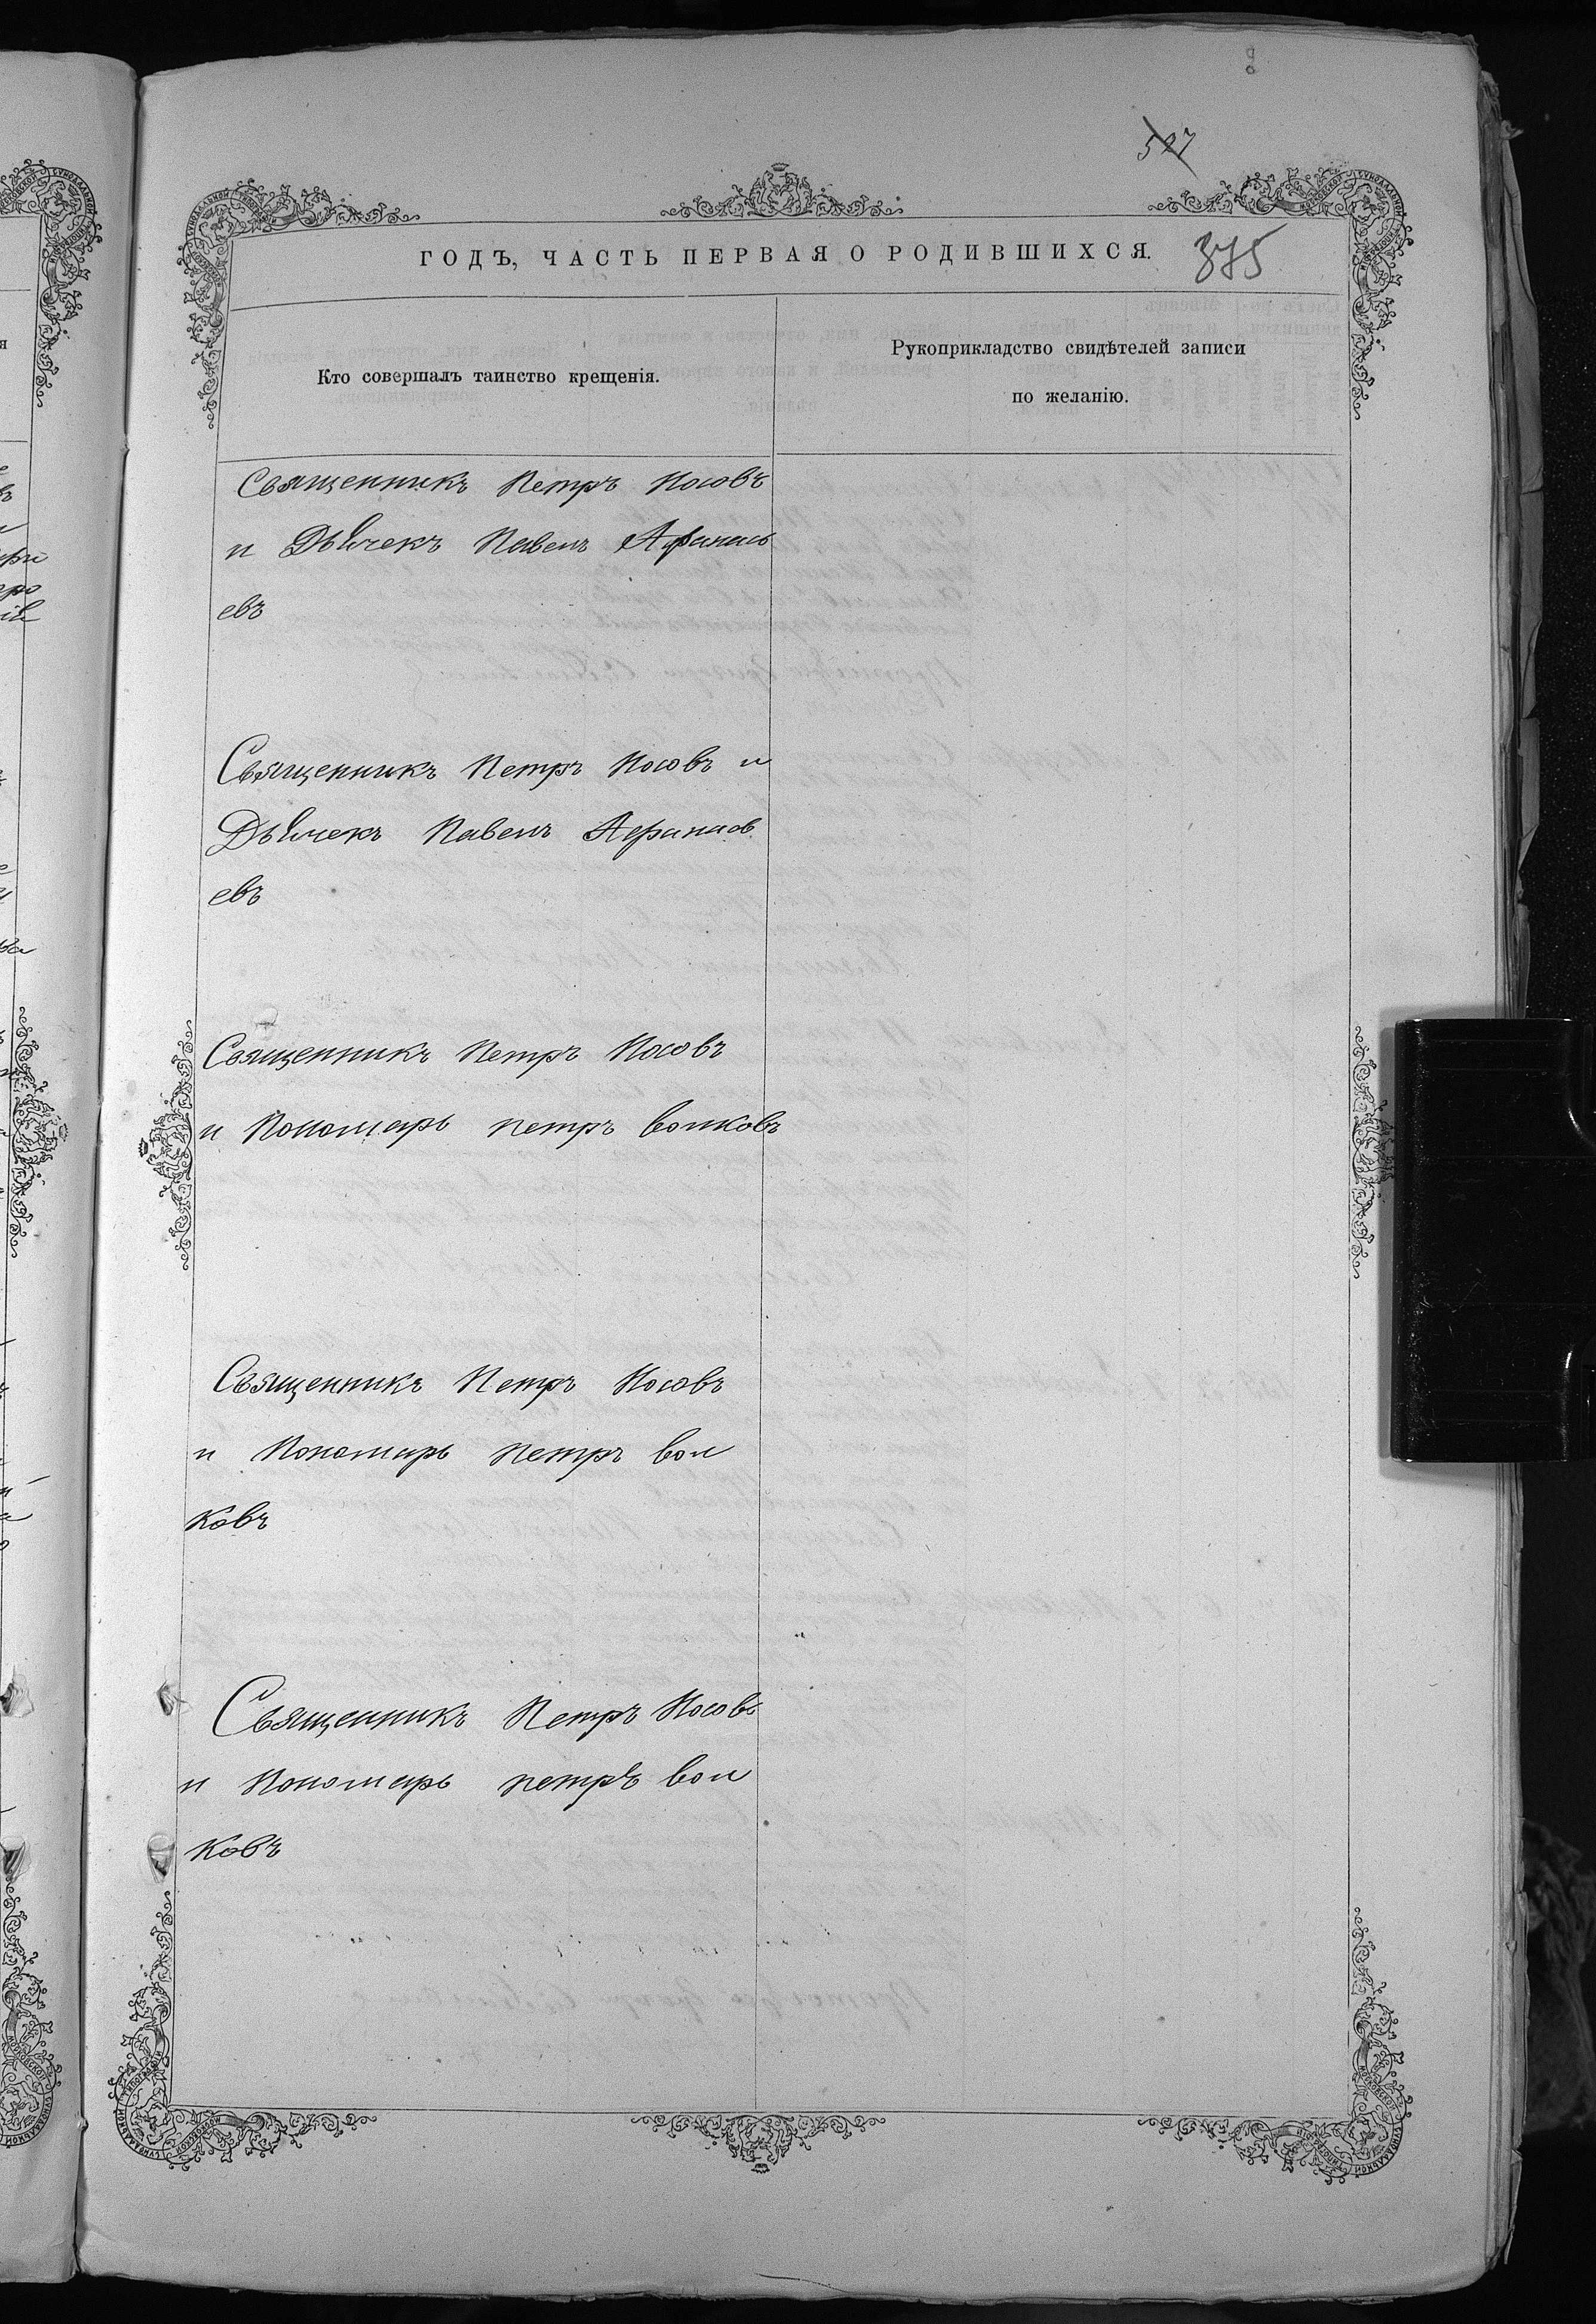 527
ГОДЪ, ЧАСТЬ ПЕРВАЯ О РОДИВШИХСЯ.
375
Кто совершалъ таинство крещенія.
Рукоприкладство свидѣтелей записи
по желанію.
Священникъ Петръ Носовъ
и Дьячекъ Павелъ Афанась
евъ
Священникъ Петръ Носовъ и
Дьячекъ Павелъ Афанась
евъ
Священникъ Петръ Носовъ
и Пономарь петръ волковъ
Священникъ Петръ Носовъ
и Пономарь петръ вол
ковъ
Священникъ Петръ Носовъ
и Пономарь петръ вол
ковъ